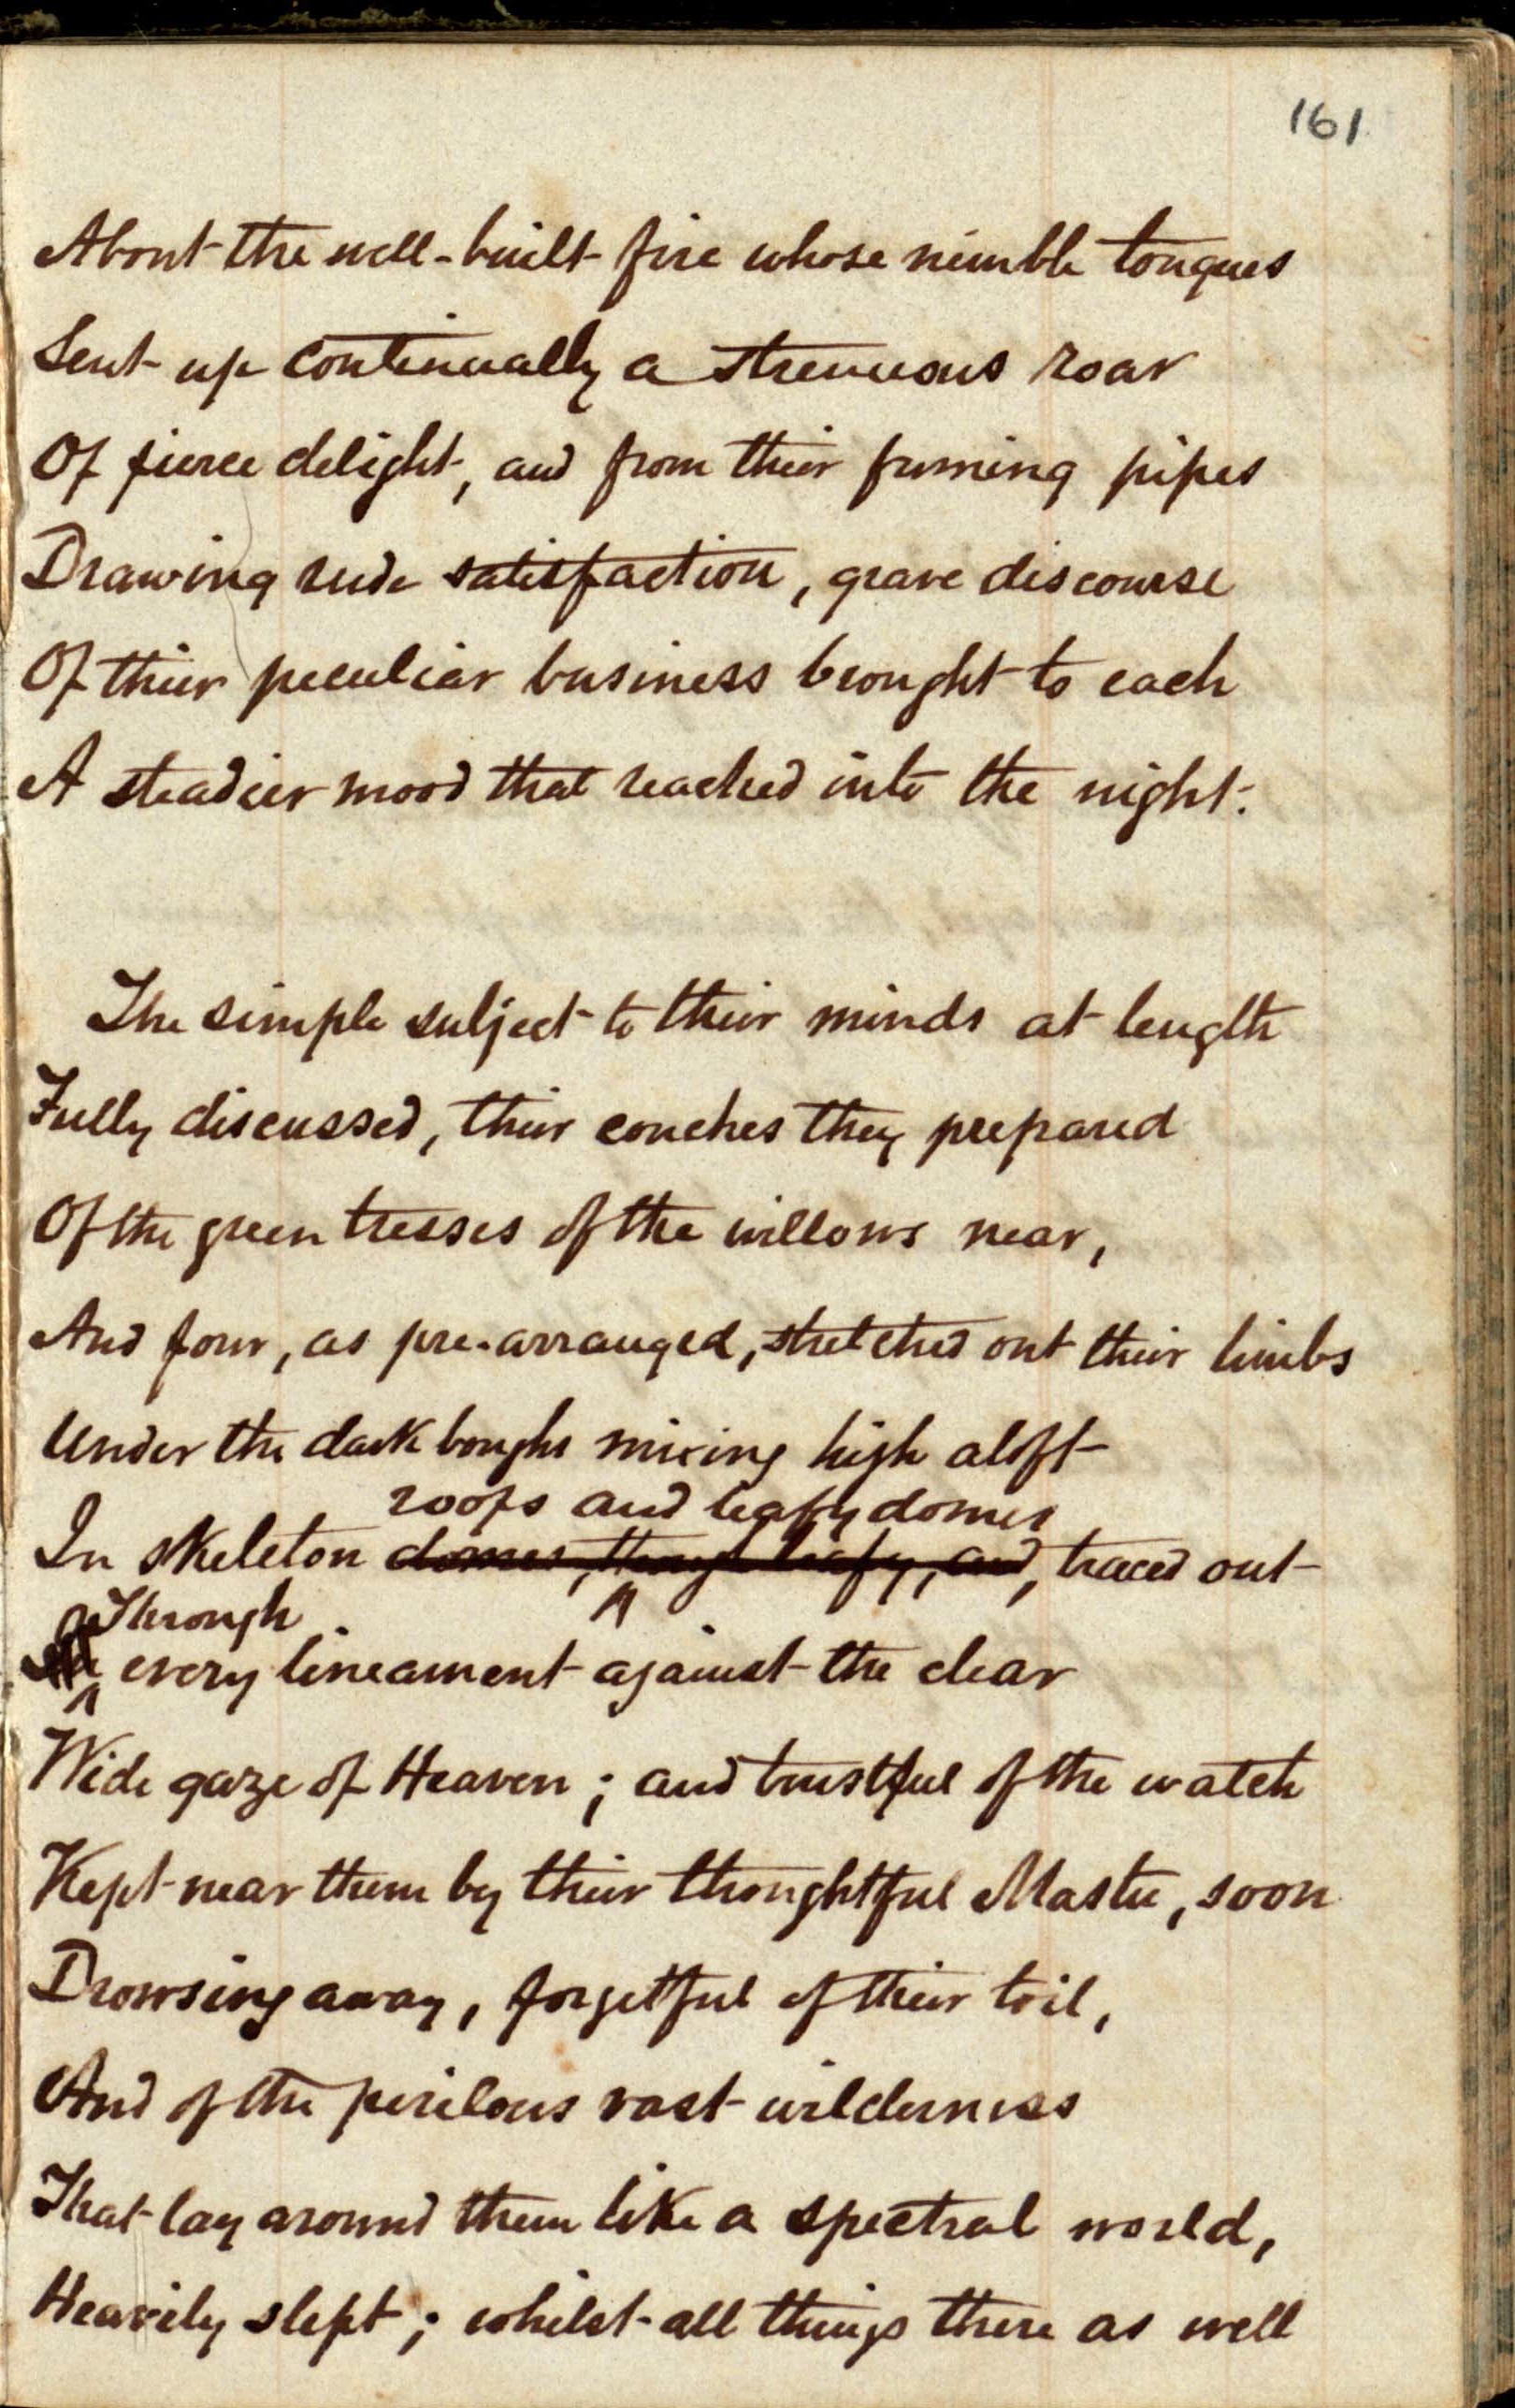 161
About the well-built fire whose nimble tongues
Sent up continually a strenuous roar
Of fierce delight, and from their fuming pipes
Drawing rude satisfaction, grave discourse
Of their peculiar business brought to each
A steadier mood that reached into the night.
The simple subject to their minds at length
Fully discussed, their couches they prepared
Of the green tresses of the willows near,
And four, as pre-arranged, stretched out their limbs
Under the dark boughs mixing high aloft
roofs and leafy domes
In skeleton domes, though leafy, and, traced out
Through
every lineament against the clear
Wide gaze of Heaven; and trustful of the watch
Kept near them by their thoughtful Master, soon
Drowsing away, forgetful of their toil,
And of the perilous vast wilderness
That lay around them like a spectral world,
Heavily slept; whilst all things there as well